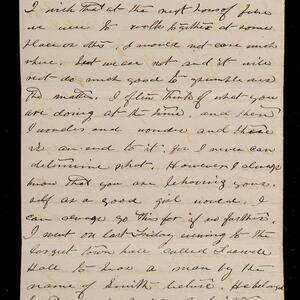 I wish that at the next hour of five
we were to walk together at some
place or other, I would not care much
where. but we are not and it will
not do much good to grumble over
the matter. I often think of what you
are doing at the time, and then
I wonder and wonder and there
is an end to it. for I never can
determine what. However I always
know that you are behaving your-
self as a good girl would. I
can always go this far if no farther.
I went on last Friday evening to the
largest town hall called
Hall to hear a man by the
name of Smith lecture. He belongs